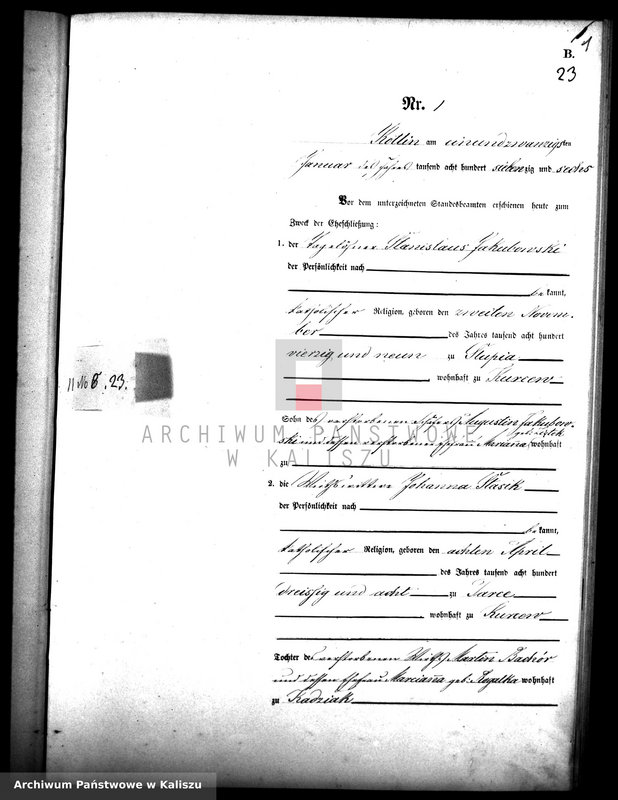 1
B.
23
Nr. 1
Kotlin am einundzwanzigsten
Januar des Jahres tausend acht hundert siebenzig und sechs
Vor dem unterzeichneten Standesbeamten erschienen heute zum
Zweck der Eheschließung:
1. der Tagelöhner Stanislaus Jakubowski
der Persönlichkeit nach
bekannt,
katholischer Religion, geboren den zweiten Novem-
ber des Jahres tausend acht hundert
vierzig und neun zu Slupia
wohnhaft zu Kurcew
11 No B. 23.
Sohn des verstorbenen Augustin Jakubow-
ski und dessen verstorbenen Ehefrau Mariana wohnhaft
zu
ARCHIWUM PAŃSTWOWE
W KALISZU
2. die Wirthswittwe Johanna Stasik
der Persönlichkeit nach
bekannt,
katholischer Religion, geboren den achten April
des Jahres tausend acht hundert
dreissig und acht zu Tarce
wohnhaft zu Kurcew
Tochter des verstorbenen Wirths Martin Bachór
und dessen Ehefrau Marcianna geb. wohnhaft
zu Kadziak
Archiwum Państwowe w Kaliszu